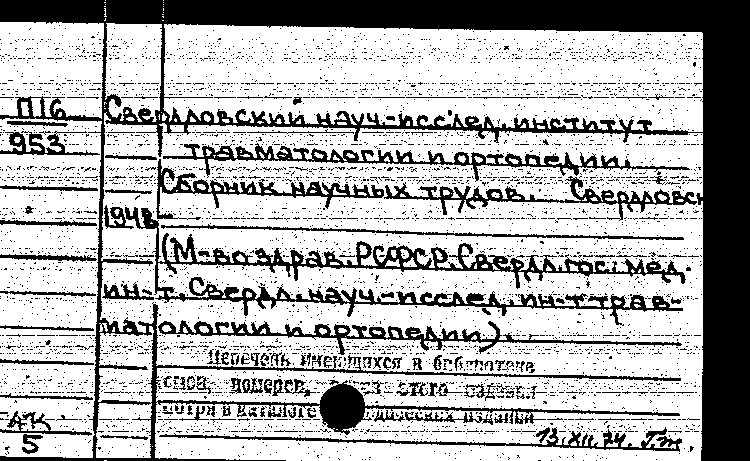 П16
953
Свердловский науч.-исслед. институт
травматологии и ортопедии.
Сборник научных трудов. Свердловск
1948-
(М-во здрав. РСФСР. Свердл. гос. мед.
ин-т. Свердл. науч.-исслед. ин-т трав-
матологии и ортопедии).
Перечень имеющихся в библиотеке
номеров, этого издания
смотри в каталоге издания
АК
5
13.XII.74.